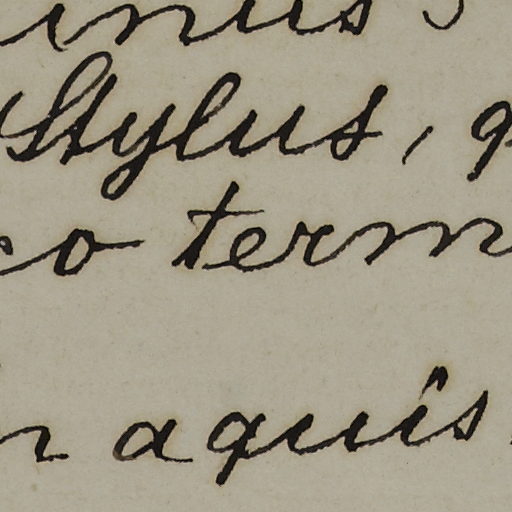 inus
Stylus,
o term
aquis